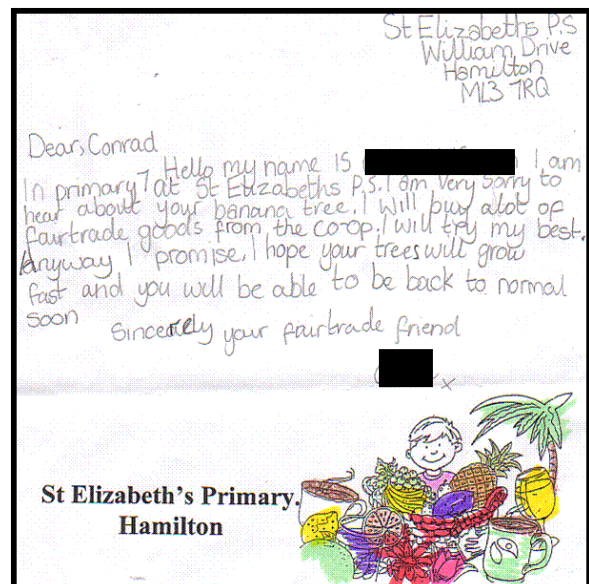 St Elizabeths P.S
William Drive
Hamilton
ML3 7RQ
Dear, Conrad
Hello my name is I am
In primary 7 at St Elizabeths P.S. I am very sorry to
hear about your banana tree. I will buy alot of
fairtrade goods from the co-op. I will try my best.
Anyway I promise. I hope your trees will grow
fast and you will be able to be back to normal
soon
Sincerely your fairtrade friend
x
St Elizabeth's Primary.
Hamilton